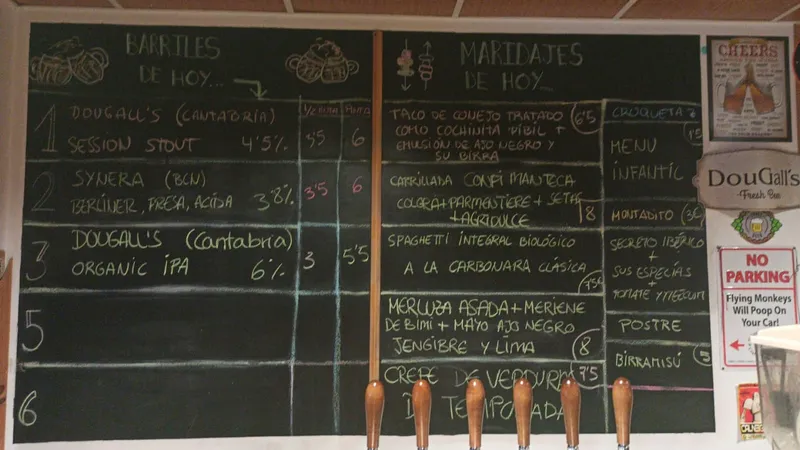 BARRILES
DE HOY...
1 DOUGALL'S (CANTABRIA)
SESSION STOUT 4'5% 6
2 SYNERA (BCN)
BERLINER, FRESA, ACIDA 3'8% 3'5 6
3 DOUGALL'S (Cantabria)
ORGANIC IPA 6% 3 5'5
5
6
MARIDAJES
DE HOY...
TACO DE CONEJO TRATADO 6'5
COMO COCHINITA PIBIL +
EMULSIÓN DE AJO NEGRO Y
SU BIRRA
CARRILLADA CONFI MANTECA
COLORÁ + PARMENTIERE + SETAS
+ AGRIDULCE 8
SPAGHETTI INTEGRAL BIOLÓGICO
A LA CARBONARA CLÁSICA
MERLUZA ASADA +
DE BIMI + MAYO AJO NEGRO
JENGIBRE Y LIMA 8
CREPE DE VERDURA 7'5
DE TEMPORADA
CROQUETA
MENU
INFANTIL
MONTADITO
SECRETO IBÉRICO
+
SUS ESPECIAS
+
TOMATE Y
POSTRE
BIRRAMISÚ 5
CHEERS
DouGall's
Fresh Beer
NO
PARKING
Flying Monkeys
Will Poop On
Your Car!